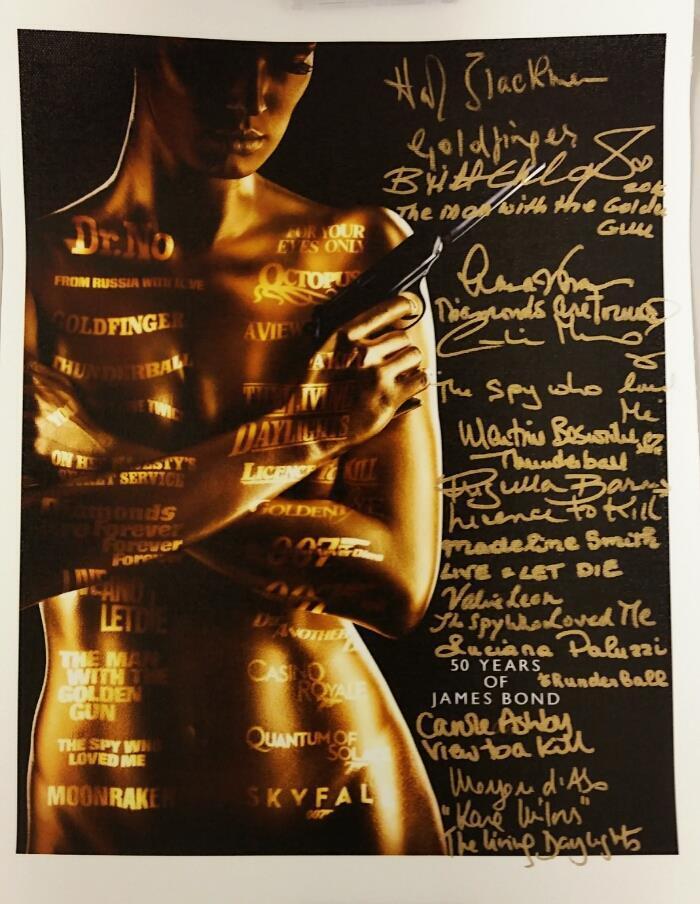 Dr. No
FROM RUSSIA WITH LOVE
GOLDFINGER
THUNDERBALL
TWICE
ON HER MAJESTY'S
SECRET SERVICE
Diamonds
Are Forever
Forever
Forever
LIVE AND
LET DIE
THE MAN
WITH THE
GOLDEN
GUN
THE SPY WHO
LOVED ME
MOONRAKER
FOR YOUR
EYES ONLY
OCTOPUS
A VIEW
A KILL
THE LIVING
DAYLIGHTS
LICENCE TO KILL
GOLDENEYE
007
007
DIE
ANOTHER
CASINO
ROYALE
QUANTUM OF
SOL
SKYFAL
007
Blackman
Goldfinger
Britt
The Man with the Golden
Gun
Diamonds Are Forever
The Spy who loved
Me
Martine Beswicke
Thunderball
Priscilla Barnes
Licence to Kill
Madeline Smith
LIVE & LET DIE
Valerie Leon
The Spy Who Loved Me
Luciana Paluzzi
Thunderball
50 YEARS
OF
JAMES BOND
Carole Ashby
View to a Kill
Maryam d'Abo
"Kara Milovy"
The Living Daylights